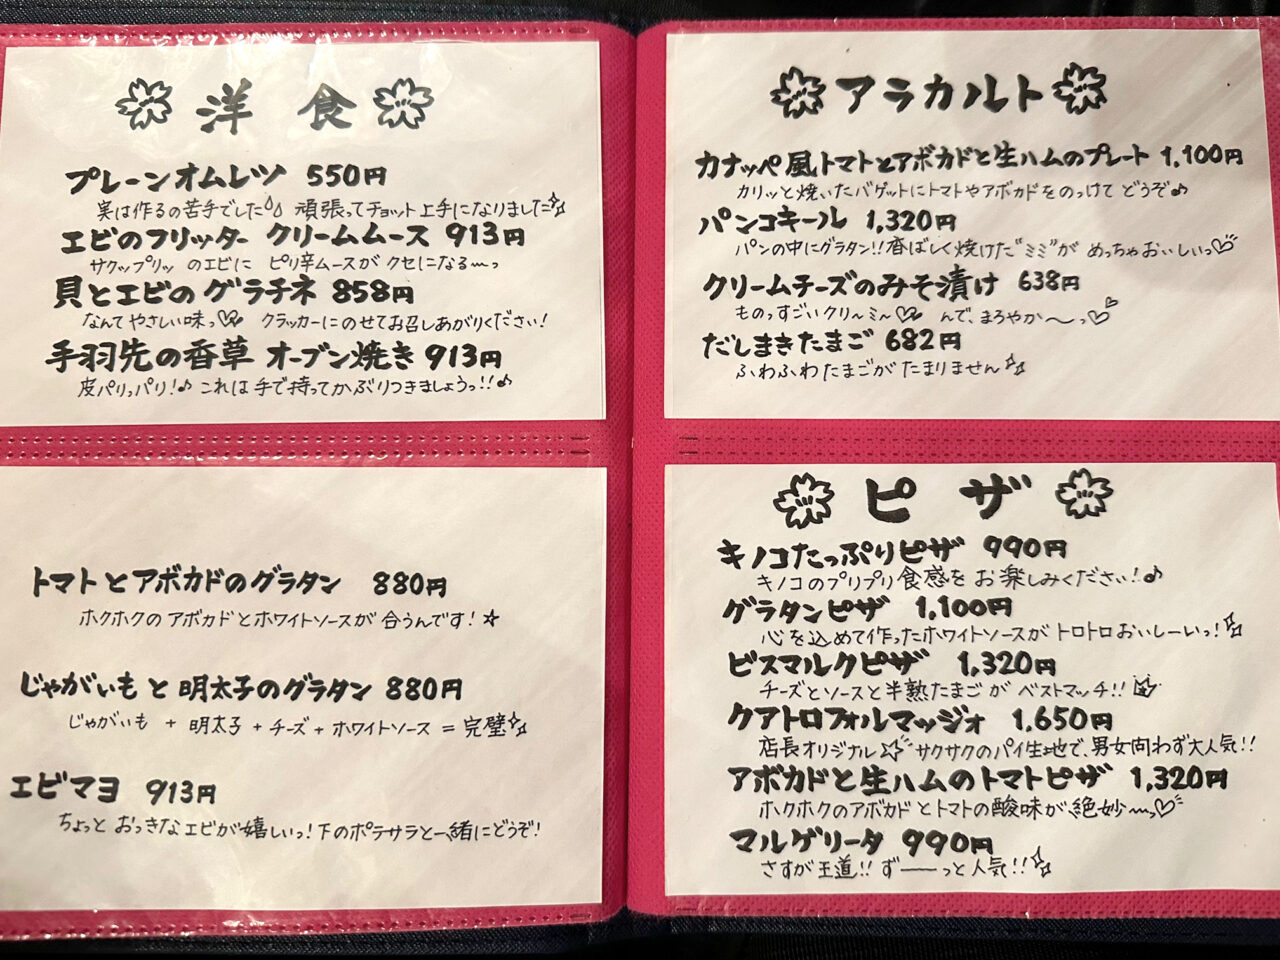 洋食
プレーンオムレツ 550円
実は作るの苦手でした 頑張ってチョット上手になりました
エビのフリッター クリームムース 913円
サクップリッ のエビに ピリ辛ムースが クセになる〜っ
貝とエビの グラチネ 858円
なんてやさしい味っ♡ クラッカーにのせてお召しあがりください!
手羽先の香草 オーブン焼き 913円
皮パリっパリ!♪ これは手で持ってかぶりつきましょうっ!!♪
トマトとアボカドのグラタン 880円
ホクホクのアボカドとホワイトソースが 合うんです!☆
じゃがいもと明太子のグラタン 880円
じゃがいも + 明太子 + チーズ + ホワイトソース = 完璧
エビマヨ 913円
ちょっと おっきなエビが嬉しいっ!下のポテサラと一緒にどうぞ!
アラカルト
カナッペ風トマトとアボカドと生ハムのプレート 1,100円
カリッと焼いたバゲットにトマトやアボカドをのっけて どうぞ♪
パンコキール 1,320円
パンの中にグラタン!!香ばしく焼けた"ミミ"が めっちゃおいしいっ♡
クリームチーズのみそ漬け 638円
ものっすごいクリ〜ミ〜♡ んで、まろやか〜っ♡
だしまきたまご 682円
ふわふわたまごがたまりません
ピザ
キノコたっぷりピザ 990円
キノコのプリプリ食感を お楽しみください!♪
グラタンピザ 1,100円
心を込めて作ったホワイトソースが トロトロおいしーいっ!
ビスマルクピザ 1,320円
チーズとソースと半熟たまごが ベストマッチ!!
クアトロフォルマッジォ 1,650円
店長オリジナル☆ サクサクのパイ生地で、男女問わず大人気!!
アボカドと生ハムのトマトピザ 1,320円
ホクホクのアボカドとトマトの酸味が、絶妙〜っ♡
マルゲリータ 990円
さすが王道!! ず——っと人気!!